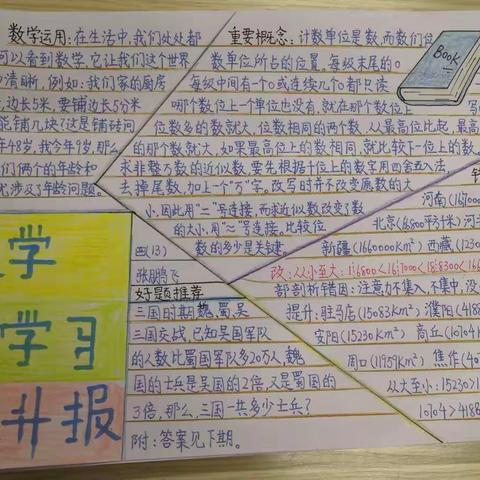 数学运用:在生活中,我们处处都
可以看到数学,它让我们这个世界
清晰,例如:我们家的厨房
边长5米,要铺边长5分米
能铺几块?这是铺砖问
年48岁,我今年9岁,那么
们俩个的年龄和
尤涉及了年龄问题。
重要概念:计数单位是数,而数们位
数单位所占的位置。每级末尾的0
每级中间有一个0或连续几个0都只读
哪个数位上一个单位也没有,就在那个数位上
位数多的数就大,位数相同的两个数,从最高位比起,最高
的那个数就大,如果最高位上的数相同,就比较下一位上的数
求非整万数的近似数,要先根据千位上的数字用四舍五入法,
去掉尾数,加上一个"万"字,改写时并不改变原数的大
小,因此用"="号连接,而求近似数改变了数
的大小,用"≈"号连接,比较位
数的多少是关键。
BOOK
写
学
学习
升报
四(13)
张鹏飞
好题推荐
三国时期魏、蜀、吴
三国交战,已知吴国军队
的人数比蜀国军队多20万人,魏
国的士兵是吴国的2倍,又是蜀国的
3倍,那么,三国一共多少士兵?
附:答案见下期。
河南(167000
北京(16800平方千米)河
新疆(1660000Km²)西藏(1230
改:从小至大:16800<167000<188300<166
部剖析错因:注意力不集入不集中,没
提升:驻马店(15083Km²)濮阳(4188
安阳(15230Km²)商丘(10704K
周口(11959Km²)焦作(407
从大至小:15230>1
10704>4188